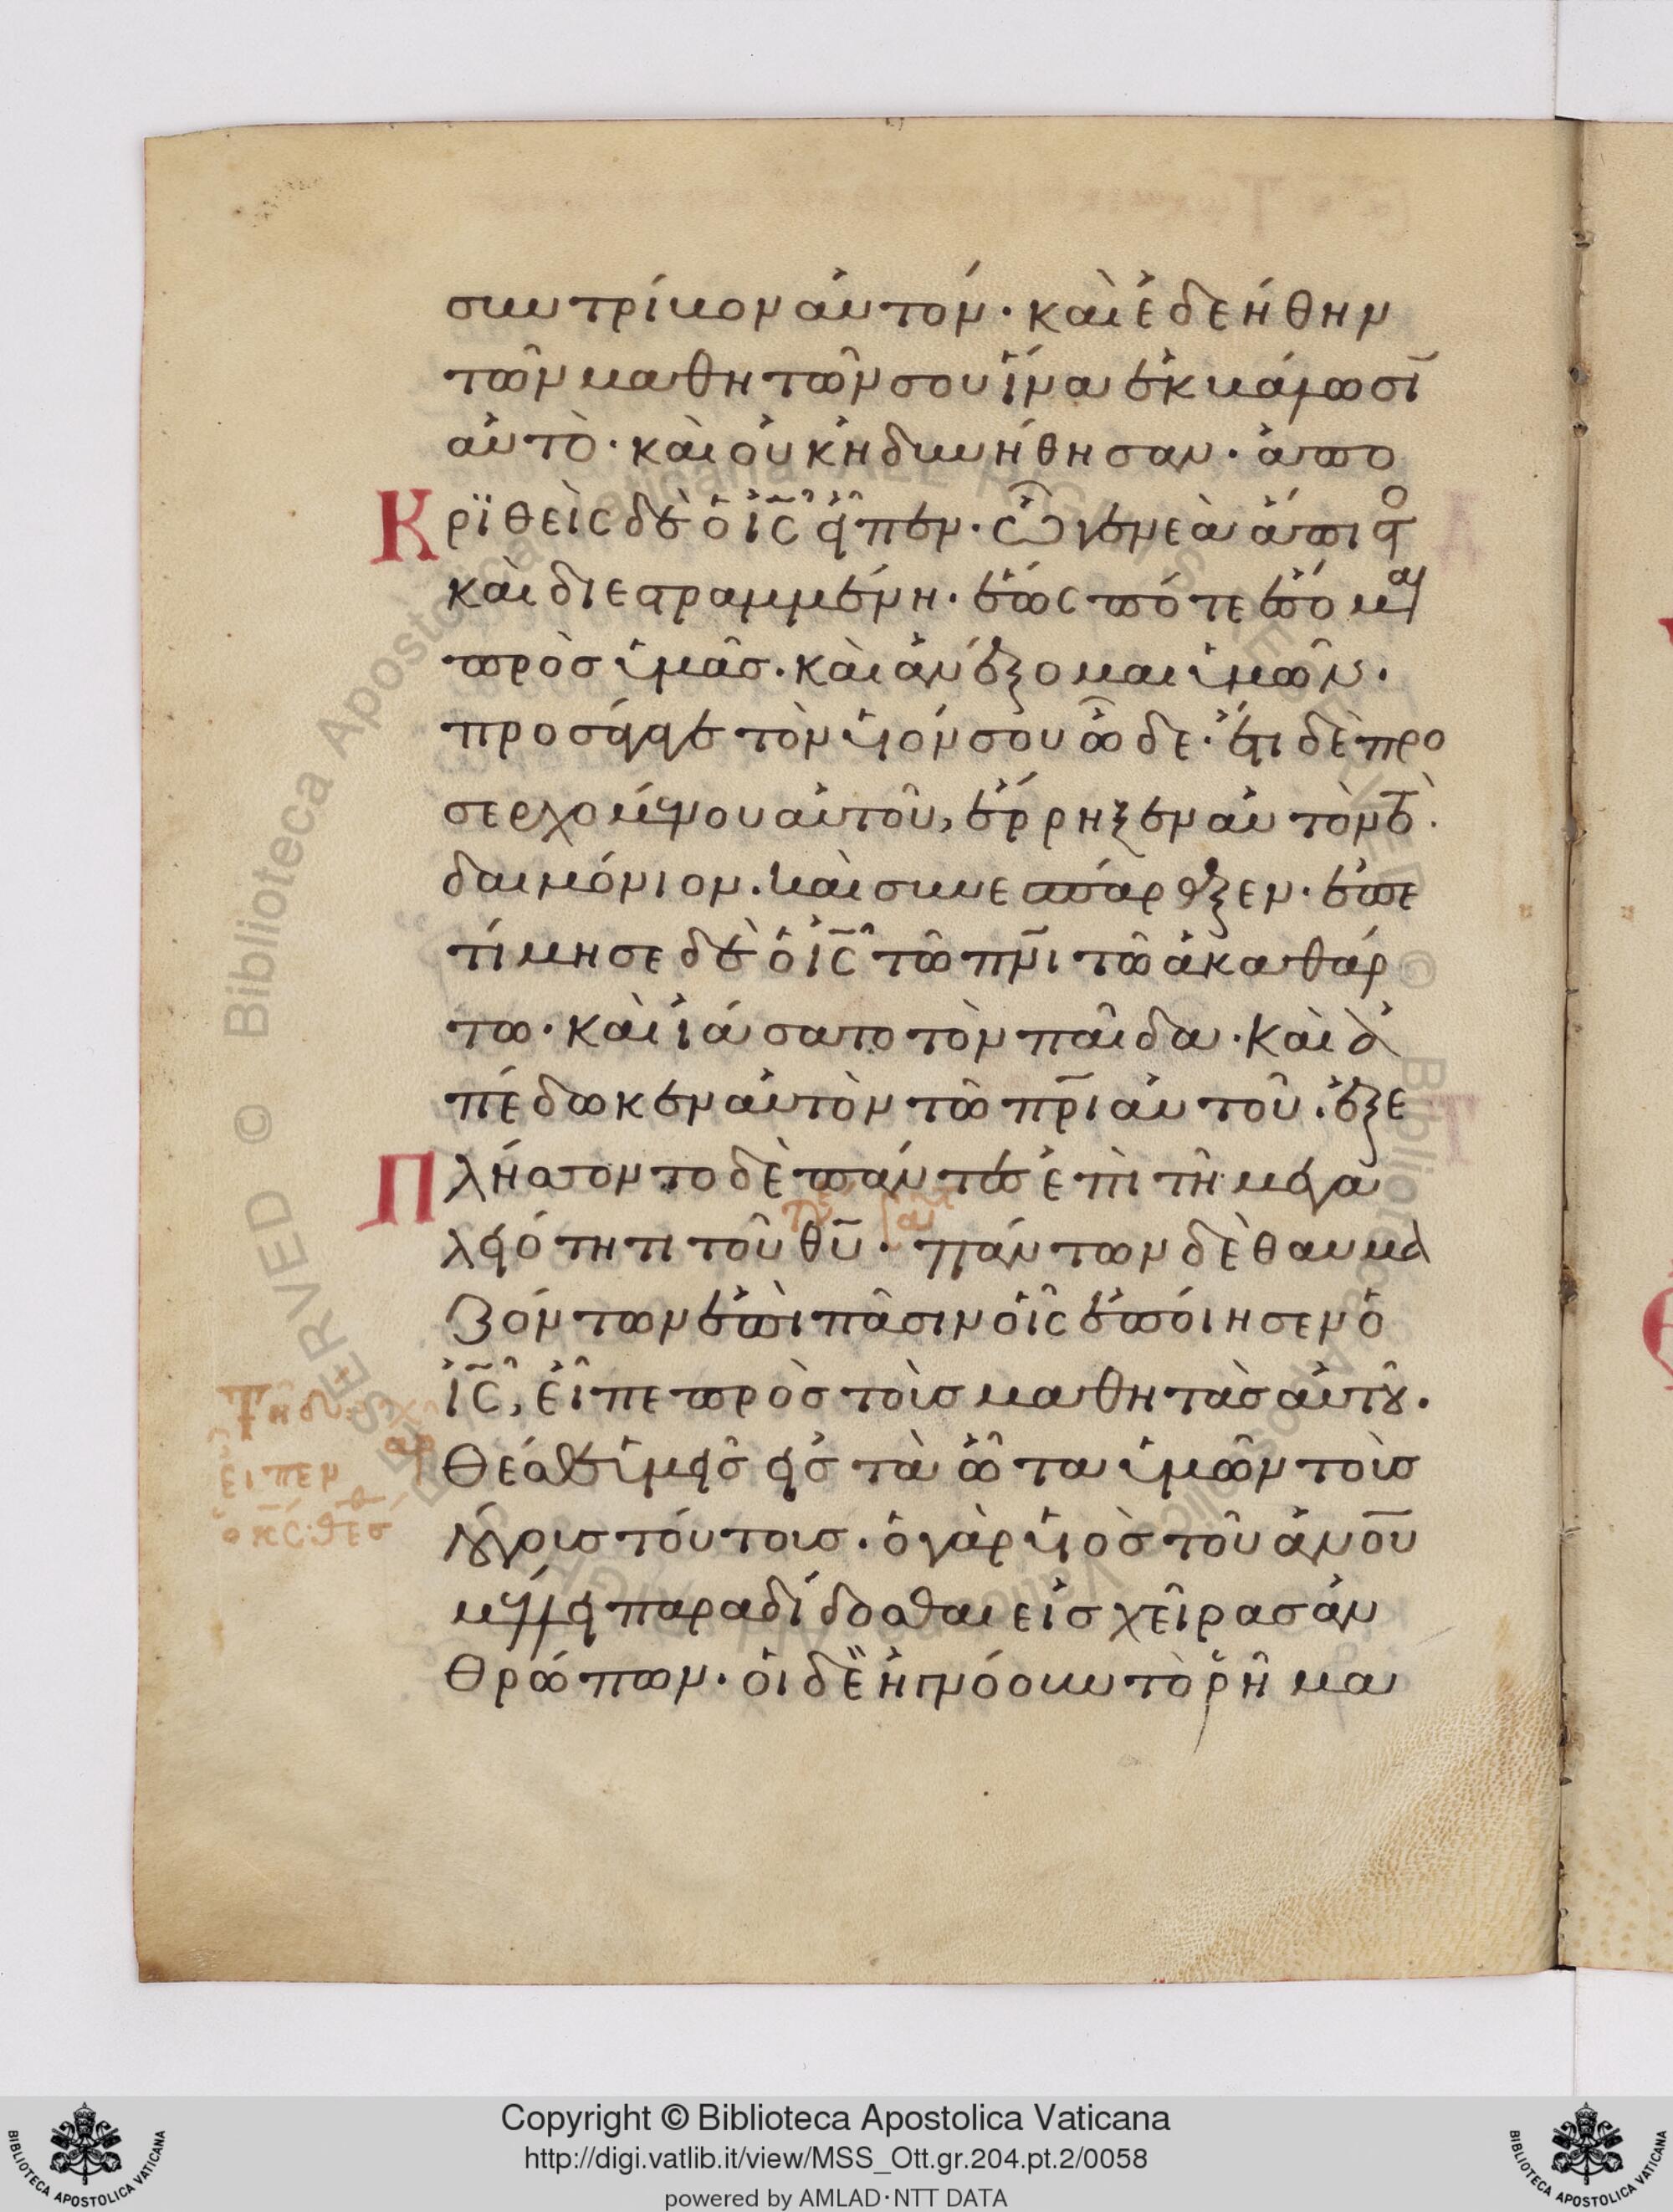 συντρίβον αὐτόν· καὶ ἐδεήθην
τῶν μαθητῶν σου ἵνα ἐκβάλωσῑ
αὐτὸ· καὶ οὐκ ἠδυνήθησαν· ἀπο
Κρϊθεὶς δὲ ὁ ἰ̅ς̅ εἶπεν· ὦ γενεὰ ἄπιστο
καὶ διεστραμμένη· ἕως πότε ἔσομαι
πρὸσ ὑμᾶσ· καὶ ἀνέξομαι ὑμῶν·
προσάγαγε τὸν υἱόν σου ὧδε· ἔτι δὲ προ
σερχομένου αὐτοῦ, ἔρρηξεν αὐτὸν τ̅
δαιμόνιον· καὶ συνεσπάραξεν· ἐπε
τίμησε δὲ ὁ ἰ̅ς̅ τῶ π̅ν̅ι τῶ ἀκαθάρ
τω· καὶ ἰάσατο τὸν παῖδα· καὶ ἀ
πέδωκεν αὐτὸν τῶ π̅ρ̅ι αὐτοῦ· ἐξε
Πλήσσοντο δὲ πάντεσ ἐπὶ τῆ μεγα
λειότητι τοῦ θ̅υ̅· πάντων δὲ θαυμα
ζόντων ἐπὶ πᾶσιν οἷς ἐποίησεν ὁ
ἰ̅ς̅, εἶπε πρὸσ τοὺσ μαθητὰσ αὐτοῦ·
θέσθε ὑμεῖσ εἰσ τὰ ὦτα ὑμῶν τοὺσ
λόγουσ τούτουσ· ὁ γὰρ υἱὸσ τοῦ ἀ̅ν̅ο̅υ̅
μέλλει παραδίδοσθαι εἰσ χεῖρασ ἀν
θρώπων· οἱ δὲ ἠγνόουν τὸ ῥῆμα
εἶπεν
ὁ κ̅ς̅· θέσ
Copyright © Biblioteca Apostolica Vaticana
http://digi.vatlib.it/view/MSS_Ott.gr.204.pt.2/0058
powered by AMLAD·NTT DATA
BIBLIOTECA APOSTOLICA VATICANA
BIBLIOTECA APOSTOLICA VATICANA